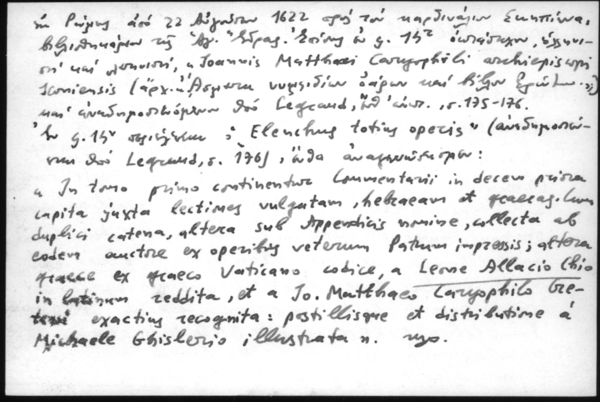 ἐν Ρώμης ἀπό 22 Αὐγούστου 1622 πρός τόν καρδινάλιον
βιβλιοθηκάριον τῆς Ἁγ. Ἕδρας. Ἐπίσης ἐν φ.
καί , "Joannis Matthaei Caryophili archiepiscopi
Iconiensis (ἀρχ. καί
καί ἀναδημοσιευόμενον ὑπό Legrand, ἔνθ' ἀνωτ., σ. 175-176.
Ἐν φ. περιέχεται ὁ "Elenchus totius operis" (ἀναδημοσιευ-
ται ὑπό Legrand, σ. 176), ἔνθα ἀναγινώσκομεν:
"In tomo primo continentur Commentarii in decem priora
capita juxta lectiones vulgatam, hebraeam et graecas. Cum
duplici catena, altera sub Appendicis nomine, collecta ab
eodem auctore ex operibus veterum Patrum impressis; altera
graece ex graeco Vaticano codice, a Leone Allacio Chio
in latinum reddita, et a Jo. Matthaeo Caryophilo Cre-
tensi exactius recognita: postillisque et distributione a
Michaele Ghislerio illustrata".